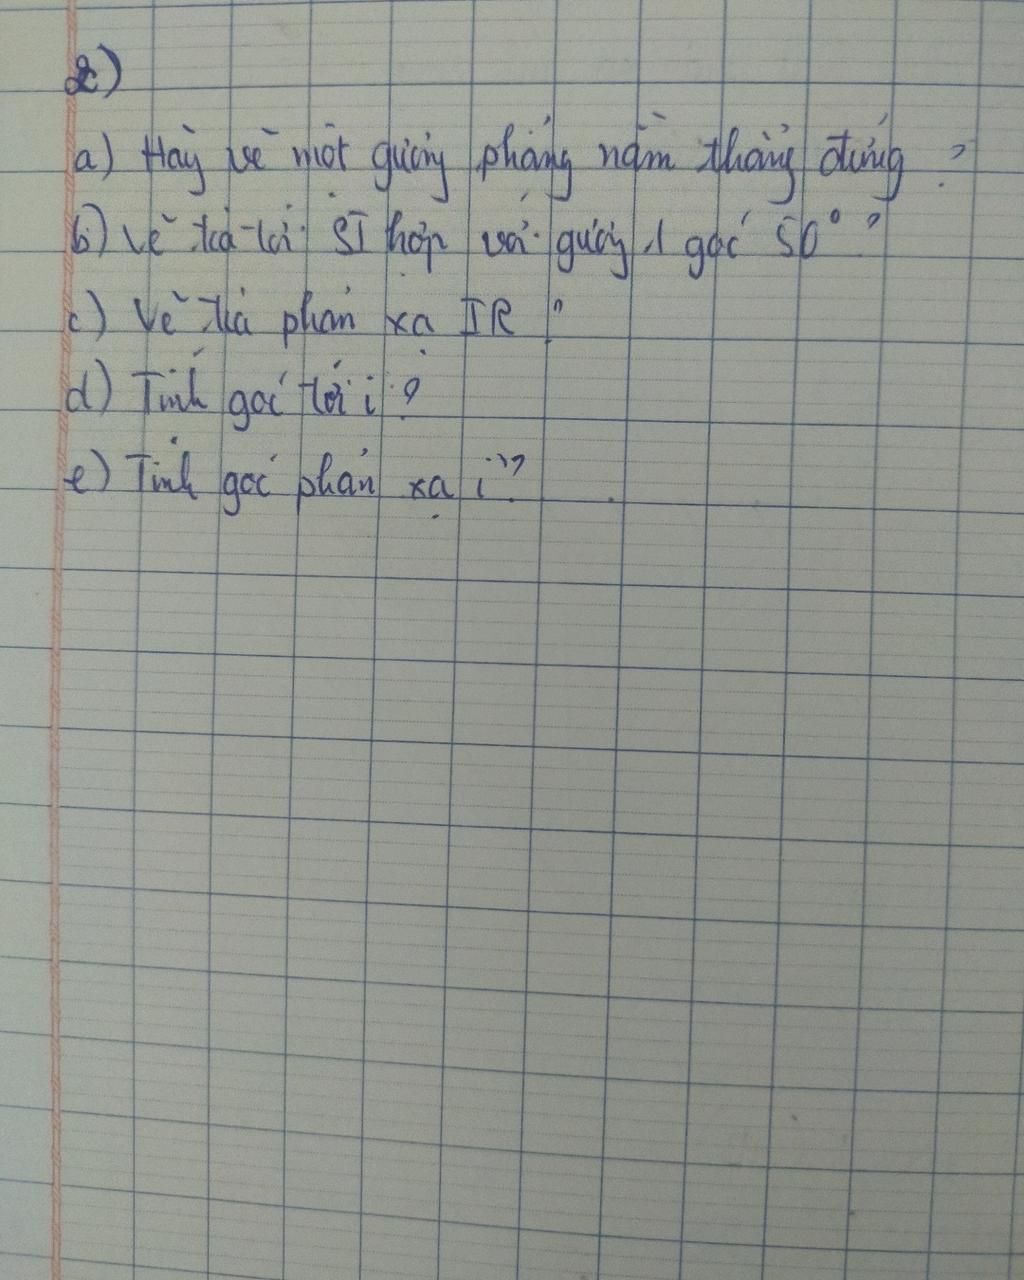 2)
a) Hãy vẽ một gương phẳng nằm thẳng đứng ?
b) Vẽ tia tới SI hợp với gương 1 góc 50° ?
c) Vẽ tia phản xạ IR ?
d) Tính góc tới i ?
e) Tính góc phản xạ i' ?